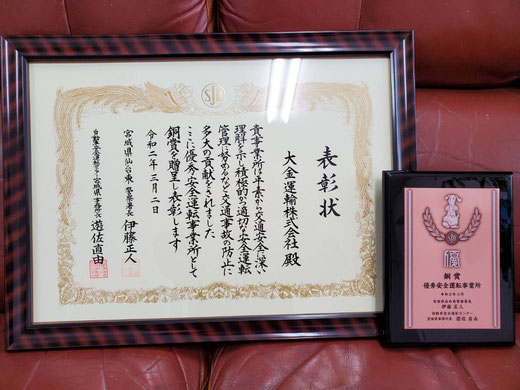 表彰状
大金運輸株式会社 殿
貴事業所は平素から交通安全に深い
理解を示し積極的かつ適切な安全運転
管理に努めるなど交通事故の防止に
多大の貢献をされました
ここに優秀安全運転事業所として
銅賞を贈呈し表彰します
令和二年三月二日
宮城県仙台東警察署長 伊藤正人
自動車安全運転センター宮城県事務所長 遊佐直由
SJ
銅賞
優秀安全運転事業所
宮城県仙台東警察署長
伊藤正人
自動車安全運転センター
宮城県事務所長 遊佐直由